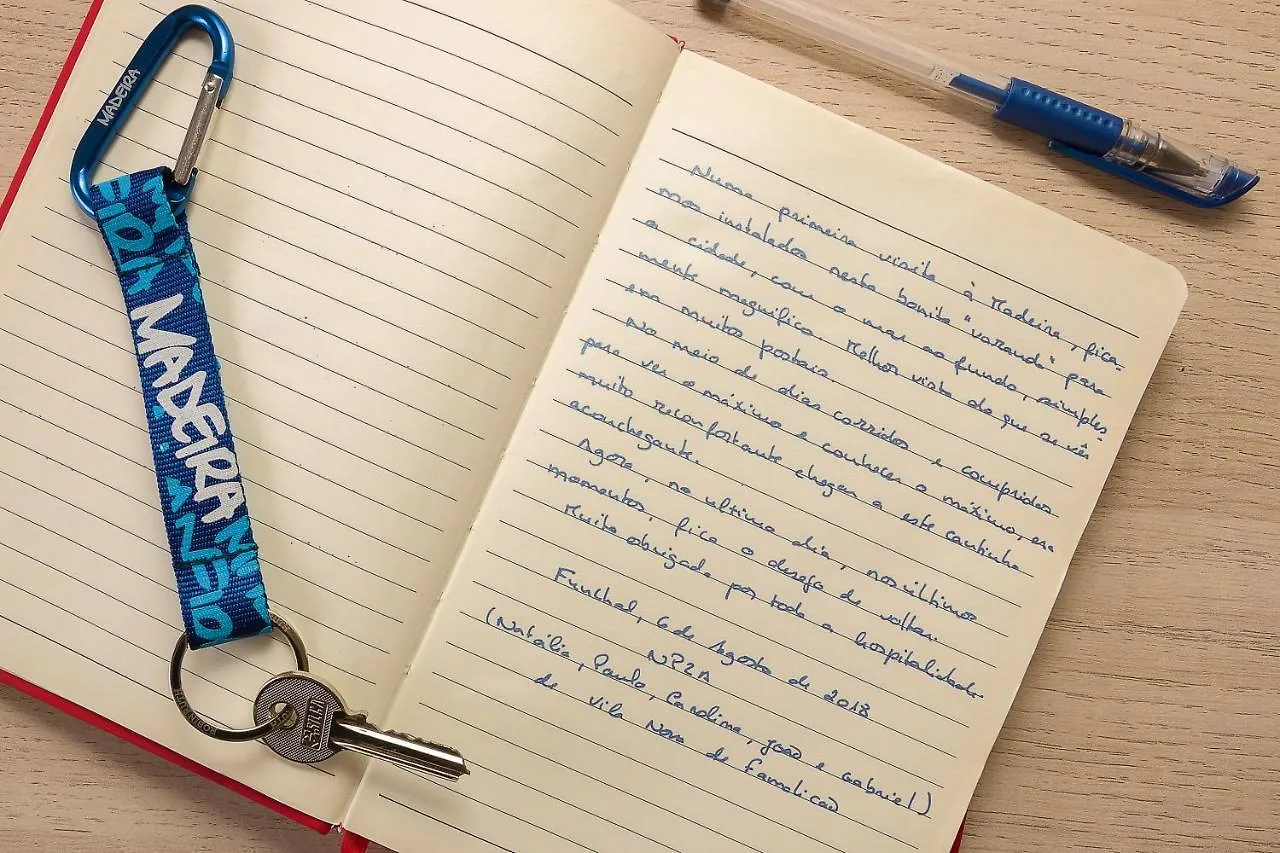 MADEIRA
MADEIRA
Numa primeira visita à Madeira, fica-
mos instalados nesta bonita "varanda" para
a cidade, com o mar ao fundo, simples-
mente magnífica. Melhor vista do que se vês
em muitos postais.
No meio de dias corridos e compridos
para ver o máximo e conhecer o máximo, era
muito reconfortante chegar a este cantinho
aconchegante.
Agora, no ultimo dia, nos últimos
momentos, fica o desejo de voltar.
Muito obrigada por toda a hospitalidade
Funchal, 6 de Agosto de 2018
(Natália, Paulo, Carolina, João e Gabriel)
de Vila Nova de Famalicão